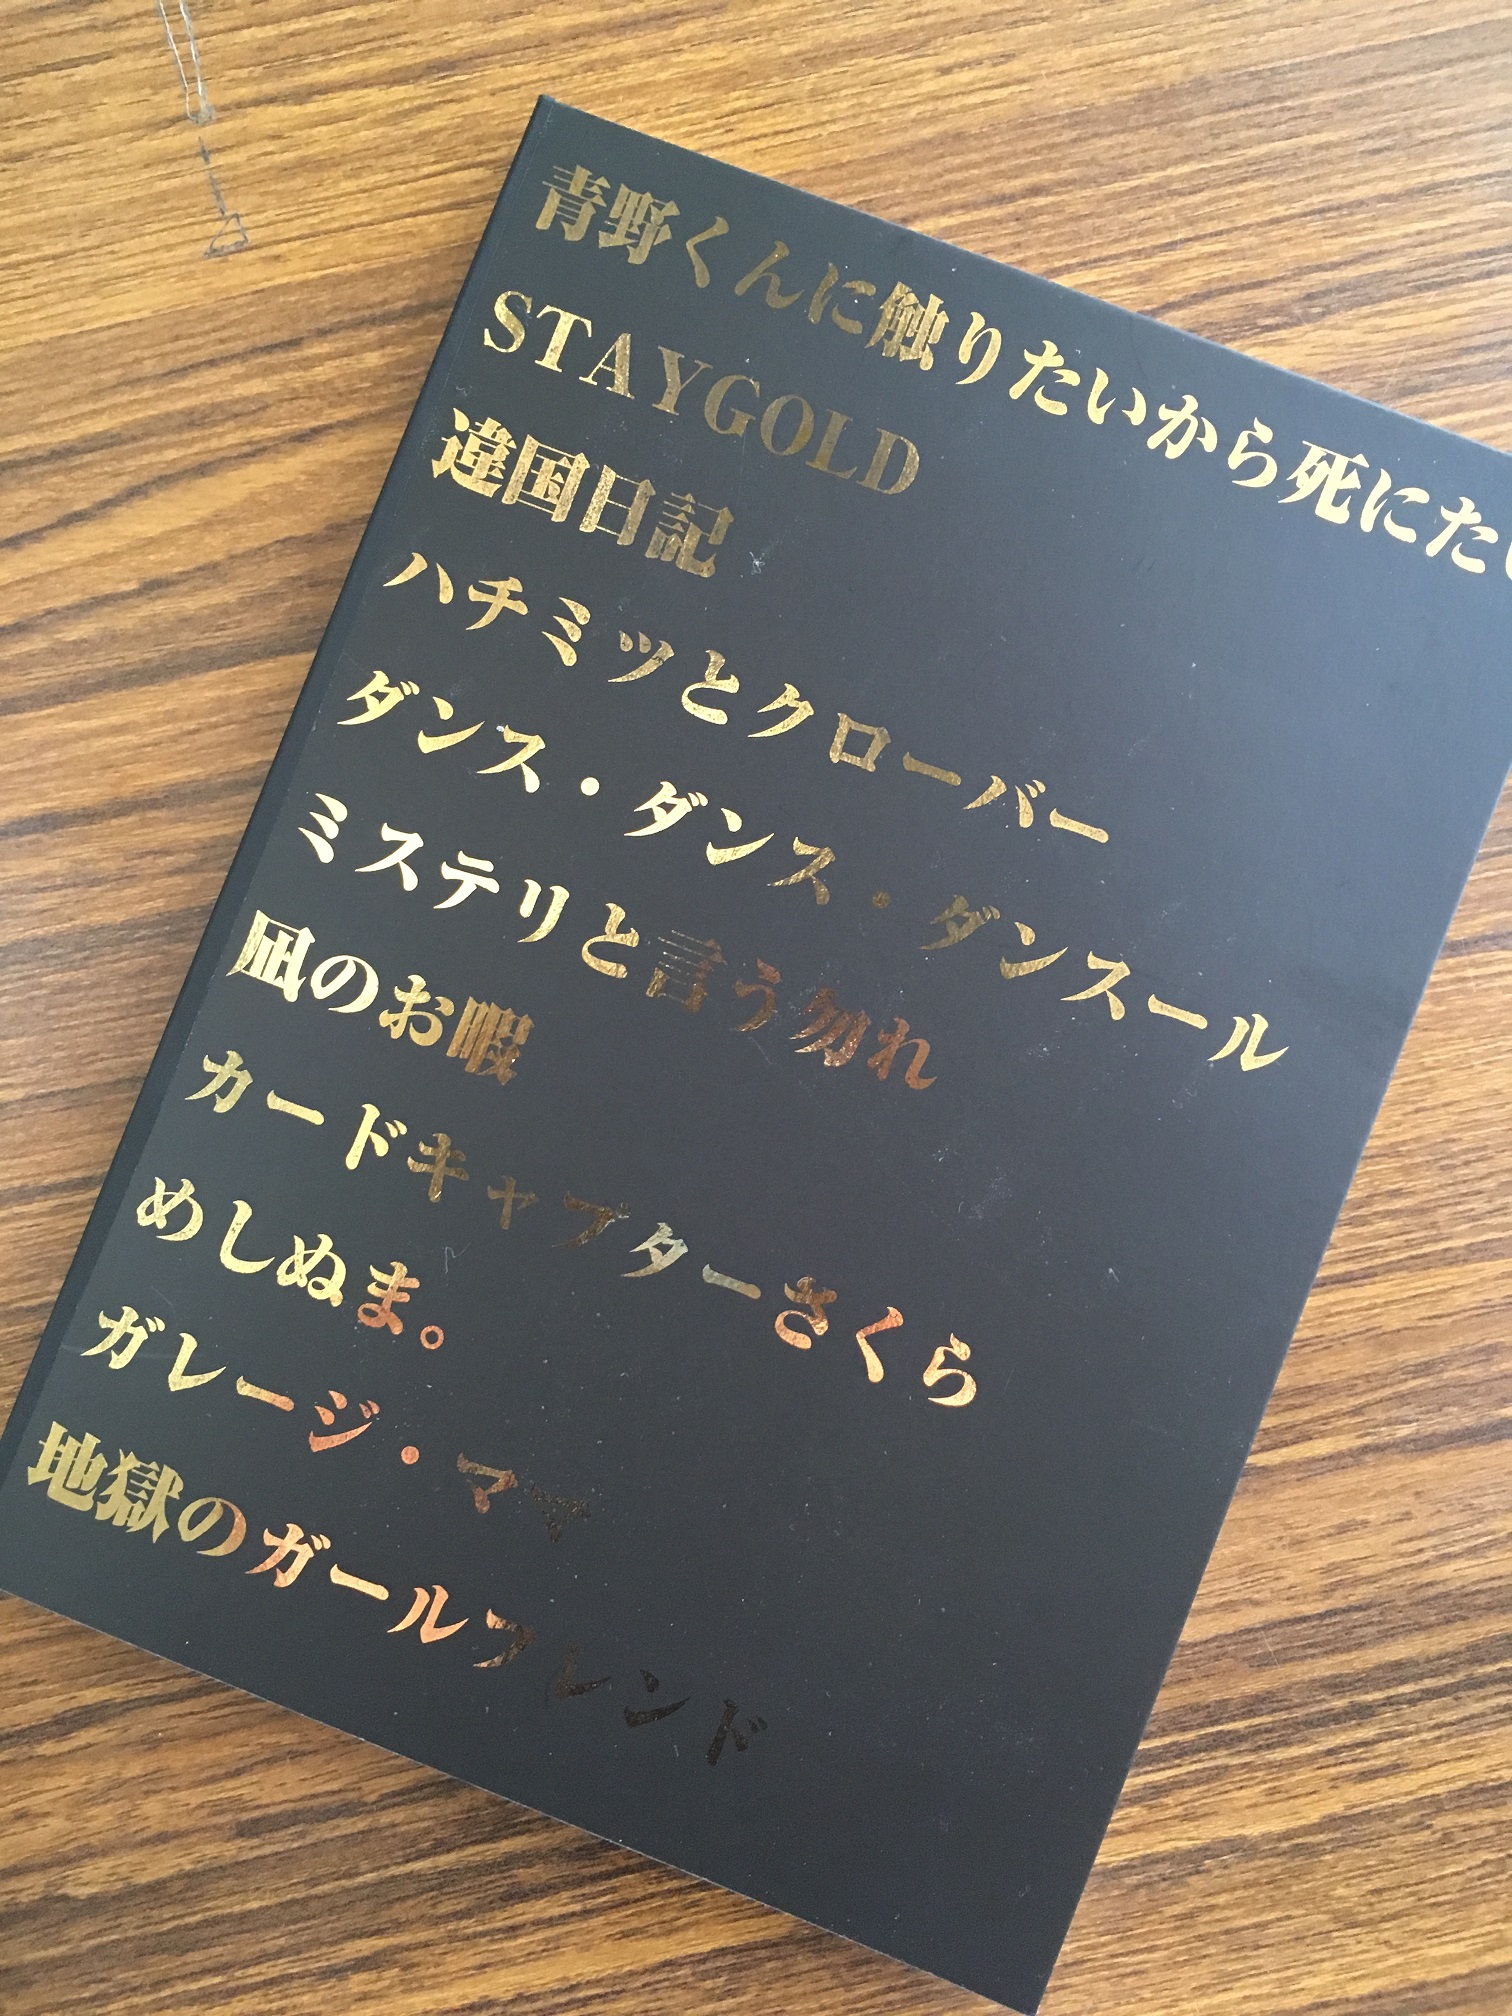 青野くんに触りたいから死にたい
STAYGOLD
違国日記
ハチミツとクローバー
ダンス・ダンス・ダンスール
ミステリと言う勿れ
凪のお暇
カードキャプターさくら
めしぬま。
ガレージ・ママ
地獄のガールフレンド